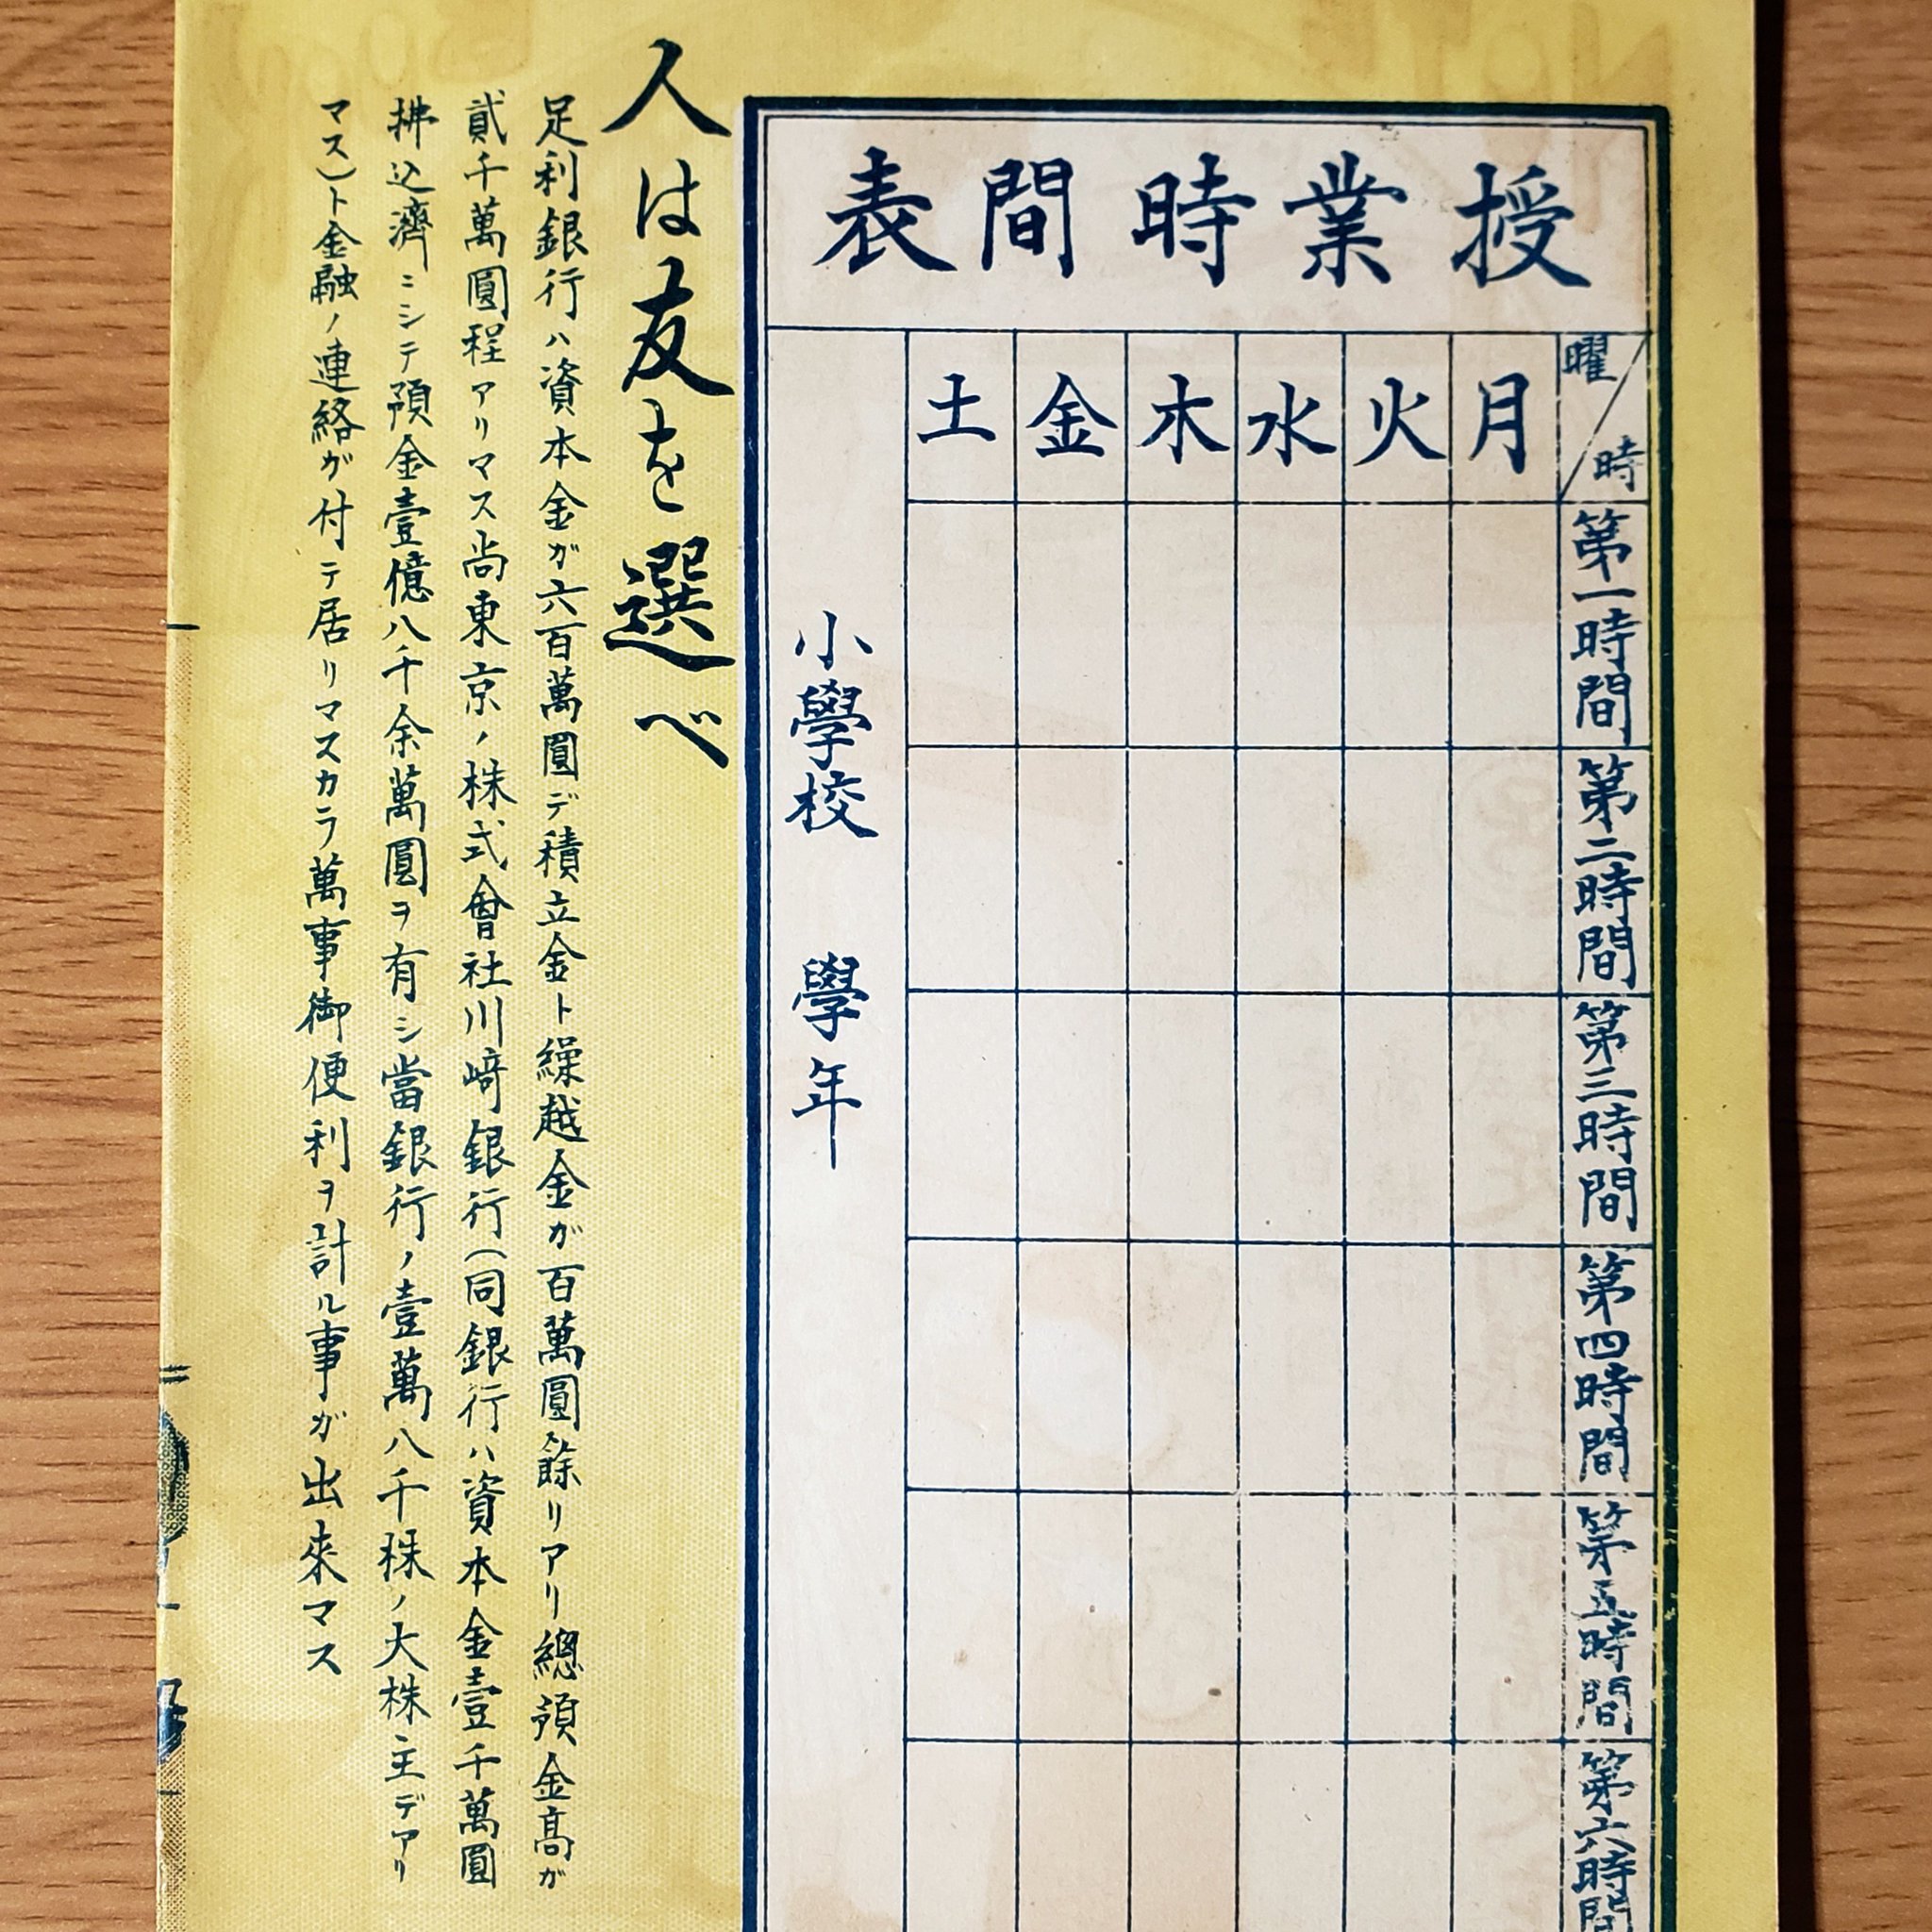 授業時間表
曜 時
月 火 水 木 金 土
第一時間
第二時間
第三時間
第四時間
第五時間
第六時間
小學校 學年
人は友を選べ
足利銀行ハ資本金ガ六百萬圓デ積立金ト繰越金ガ百萬圓餘リアリ總預金高ガ
貳千萬圓程アリマス尚東京ノ株式會社川﨑銀行(同銀行ハ資本金壹千萬圓
拂込濟ニシテ預金壹億八千余萬圓ヲ有シ當銀行ノ壹萬八千株ノ大株主デアリ
マス)ト金融ノ連絡ガ付テ居リマスカラ萬事御便利ヲ計ル事ガ出來マス